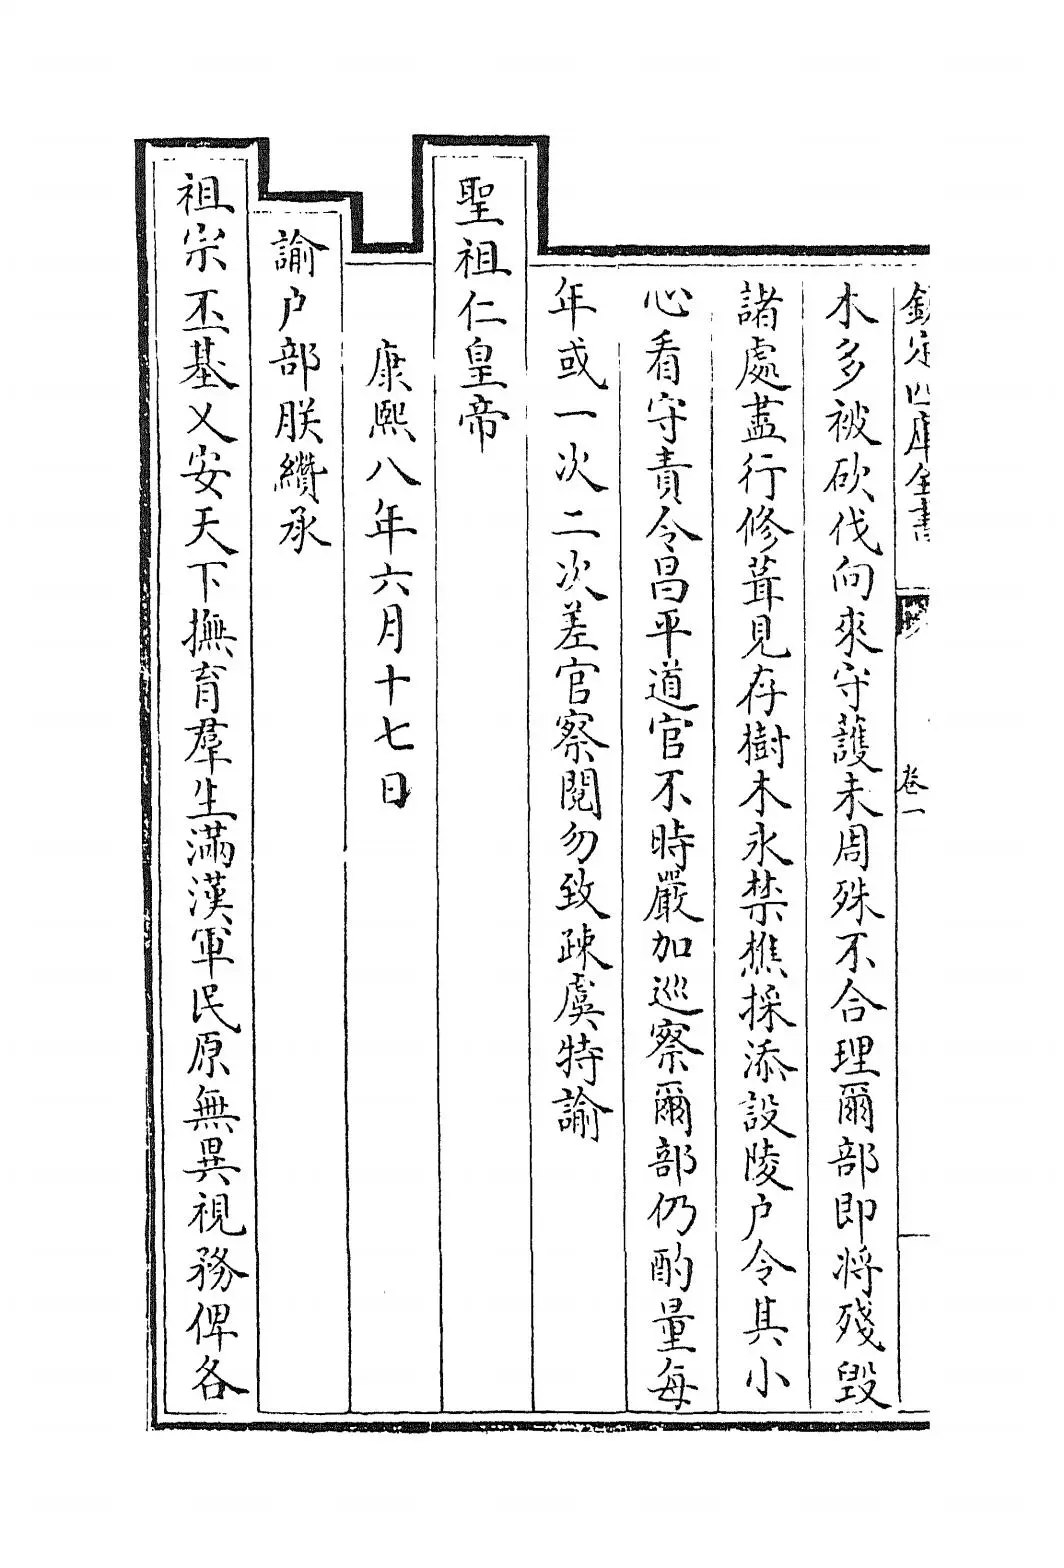 欽定四庫全書
卷一
木多被砍伐向來守護未周殊不合理爾部即將殘毀
諸處盡行修葺見存樹木永禁樵採添設陵户令其小
心看守責令昌平道官不時嚴加巡察爾部仍酌量每
年或一次二次差官察閱勿致疎虞特諭
聖祖仁皇帝
康熙八年六月十七日
諭户部朕纘承
祖宗丕基乂安天下撫育羣生滿漢軍民原無異視務俾各